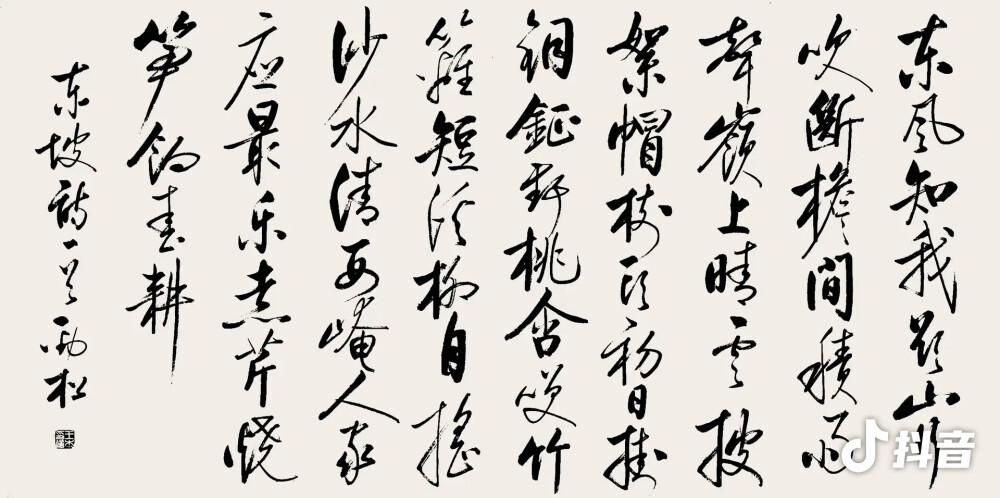 东风知我欲山行
吹斷檐間積雨
聲嶺上晴雲披
絮帽树头初日挂
銅鉦野桃含笑竹
籬短溪柳自摇
沙水清西崦人家
应最乐煮芹烧
笋饷春耕
东坡诗一首劲松
抖音